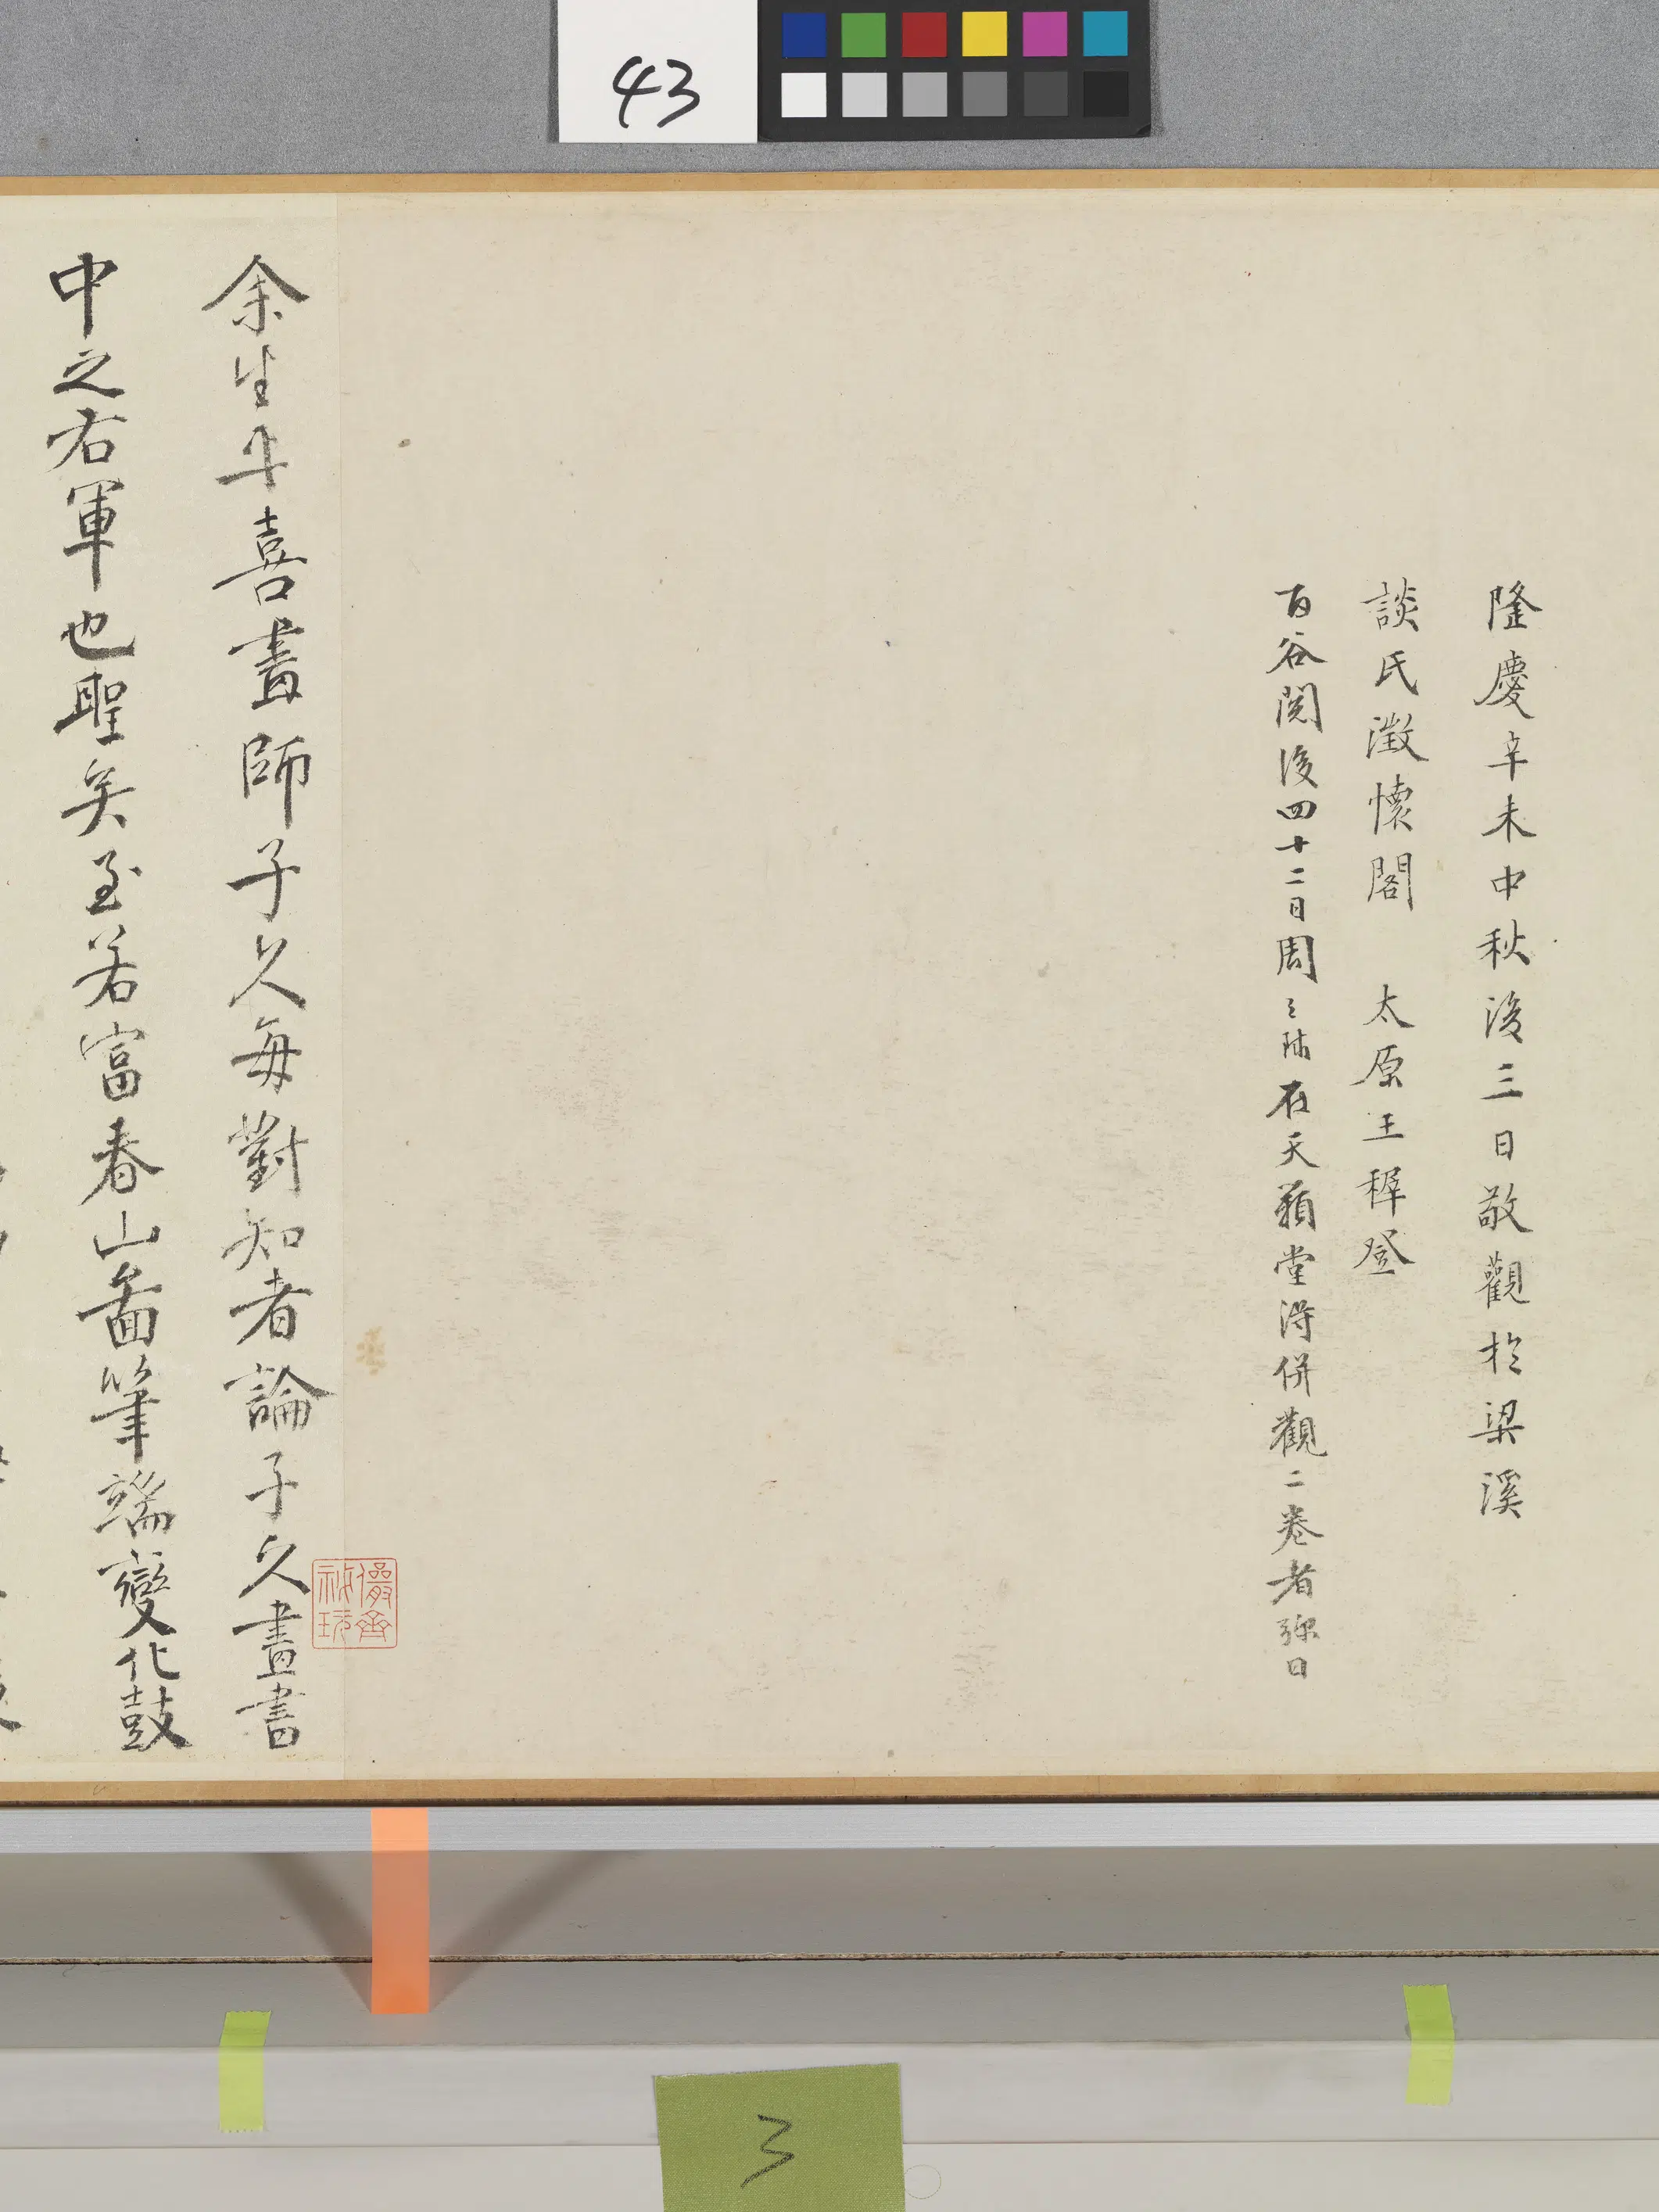 43
隆慶辛未中秋後三日敬觀於梁溪
談氏澂懷閣 太原王穉登
百谷閱後四十二日周天球在天籟堂得併觀二卷者弥日
余生平喜畫師子久每對知者論子久畫書
中之右軍也聖矣至若富春山啚筆端變化鼓
儼齋
祕玩
3